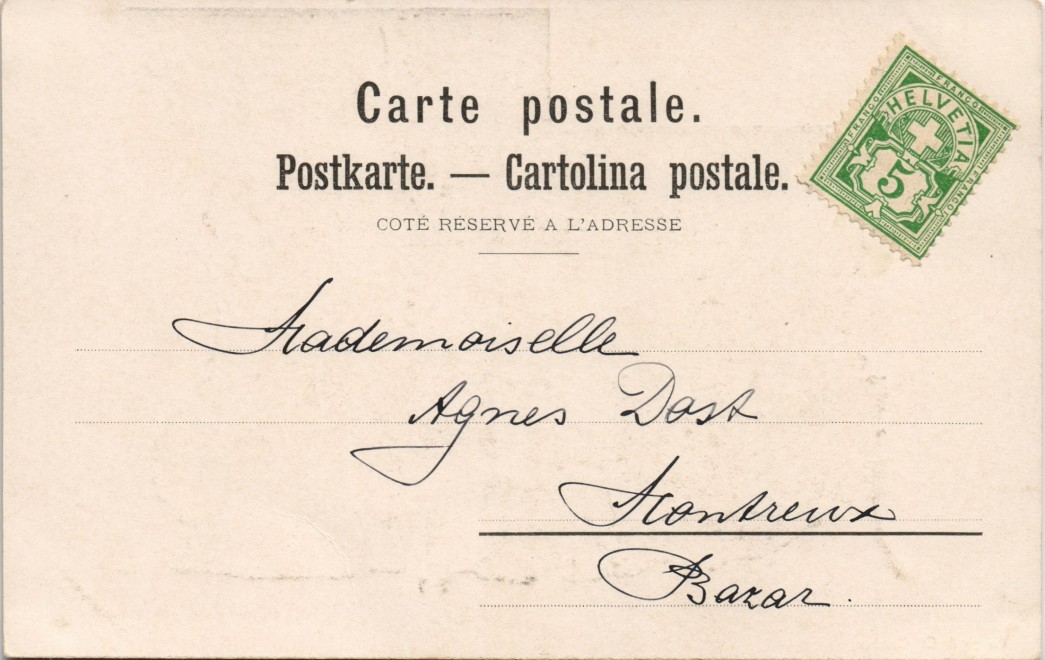 Carte postale.
Postkarte. — Cartolina postale.
COTÉ RÉSERVÉ A L'ADRESSE
FRANCO FRANCO FRANCO
HELVETIA
5
Mademoiselle
Agnes Dost
Montreux
Bazar.